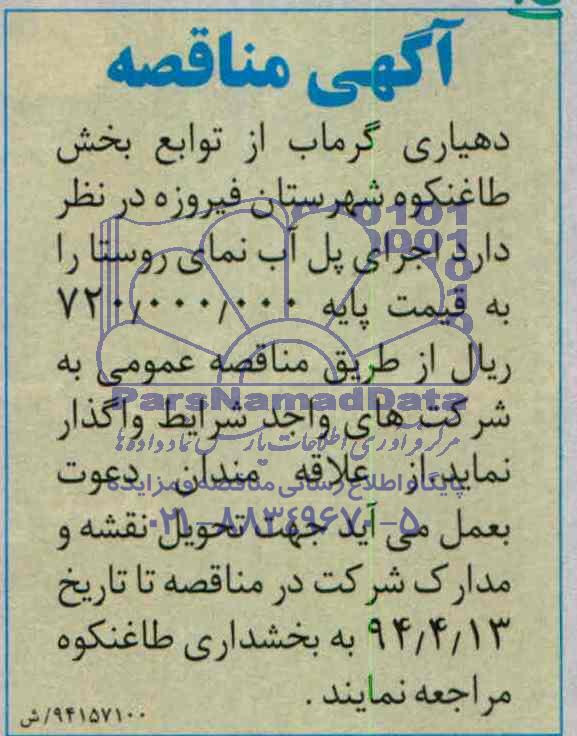 آگهی مناقصه
دهیاری گرماب از توابع بخش
طاغنکوه شهرستان فیروزه در نظر
دارد اجرای پل آب نمای روستا را
به قیمت پایه ۷۲۰/۰۰۰/۰۰۰
ریال از طریق مناقصه عمومی به
ParsNamadData
شرکت های واجد شرایط واگذار
مرکز فرآوری اطلاعات پارس نماد داده ها
نماید.از علاقه مندان دعوت
پایگاه اطلاع رسانی مناقصه و مزایده
بعمل می آید جهت تحویل نقشه و
۰۲۱-۸۸۳۴۹۶۷۰-۵
مدارک شرکت در مناقصه تا تاریخ
۹۴/۴/۱۳ به بخشداری طاغنکوه
مراجعه نمایند .
۹۴۱۵۷۱۰۰/ش